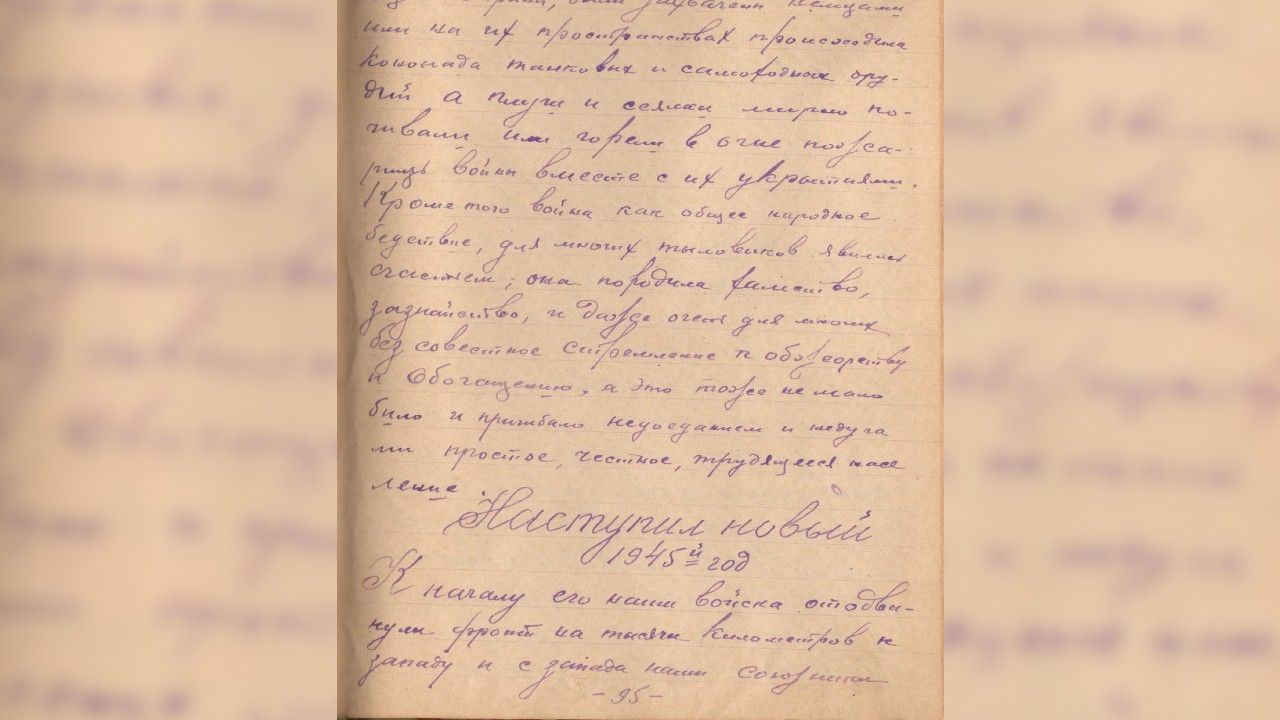 были захвачены немцами
или на их пространствах происходила
кононада танковых и самоходных ору-
дий а плуги и сеялки мирно по-
чивали или горели в огне пожа-
рищь войны вместе с их укрытиями.
Кроме того война как общее народное
бедствие, для многих тыловиков явилась
счастьем, она породила
зазнайство, и даже очень для многих
без совестное стремление к обжорству
и обогащению, а это тоже не мало
било и пришибало недоеданием и недуга
ми простое, честное, трудящееся насе
ление.
Наступил новый
1945й год
К началу его наши войска отодви-
нули фронт на тысячи километров к
западу и с запада наши союзники
-95-